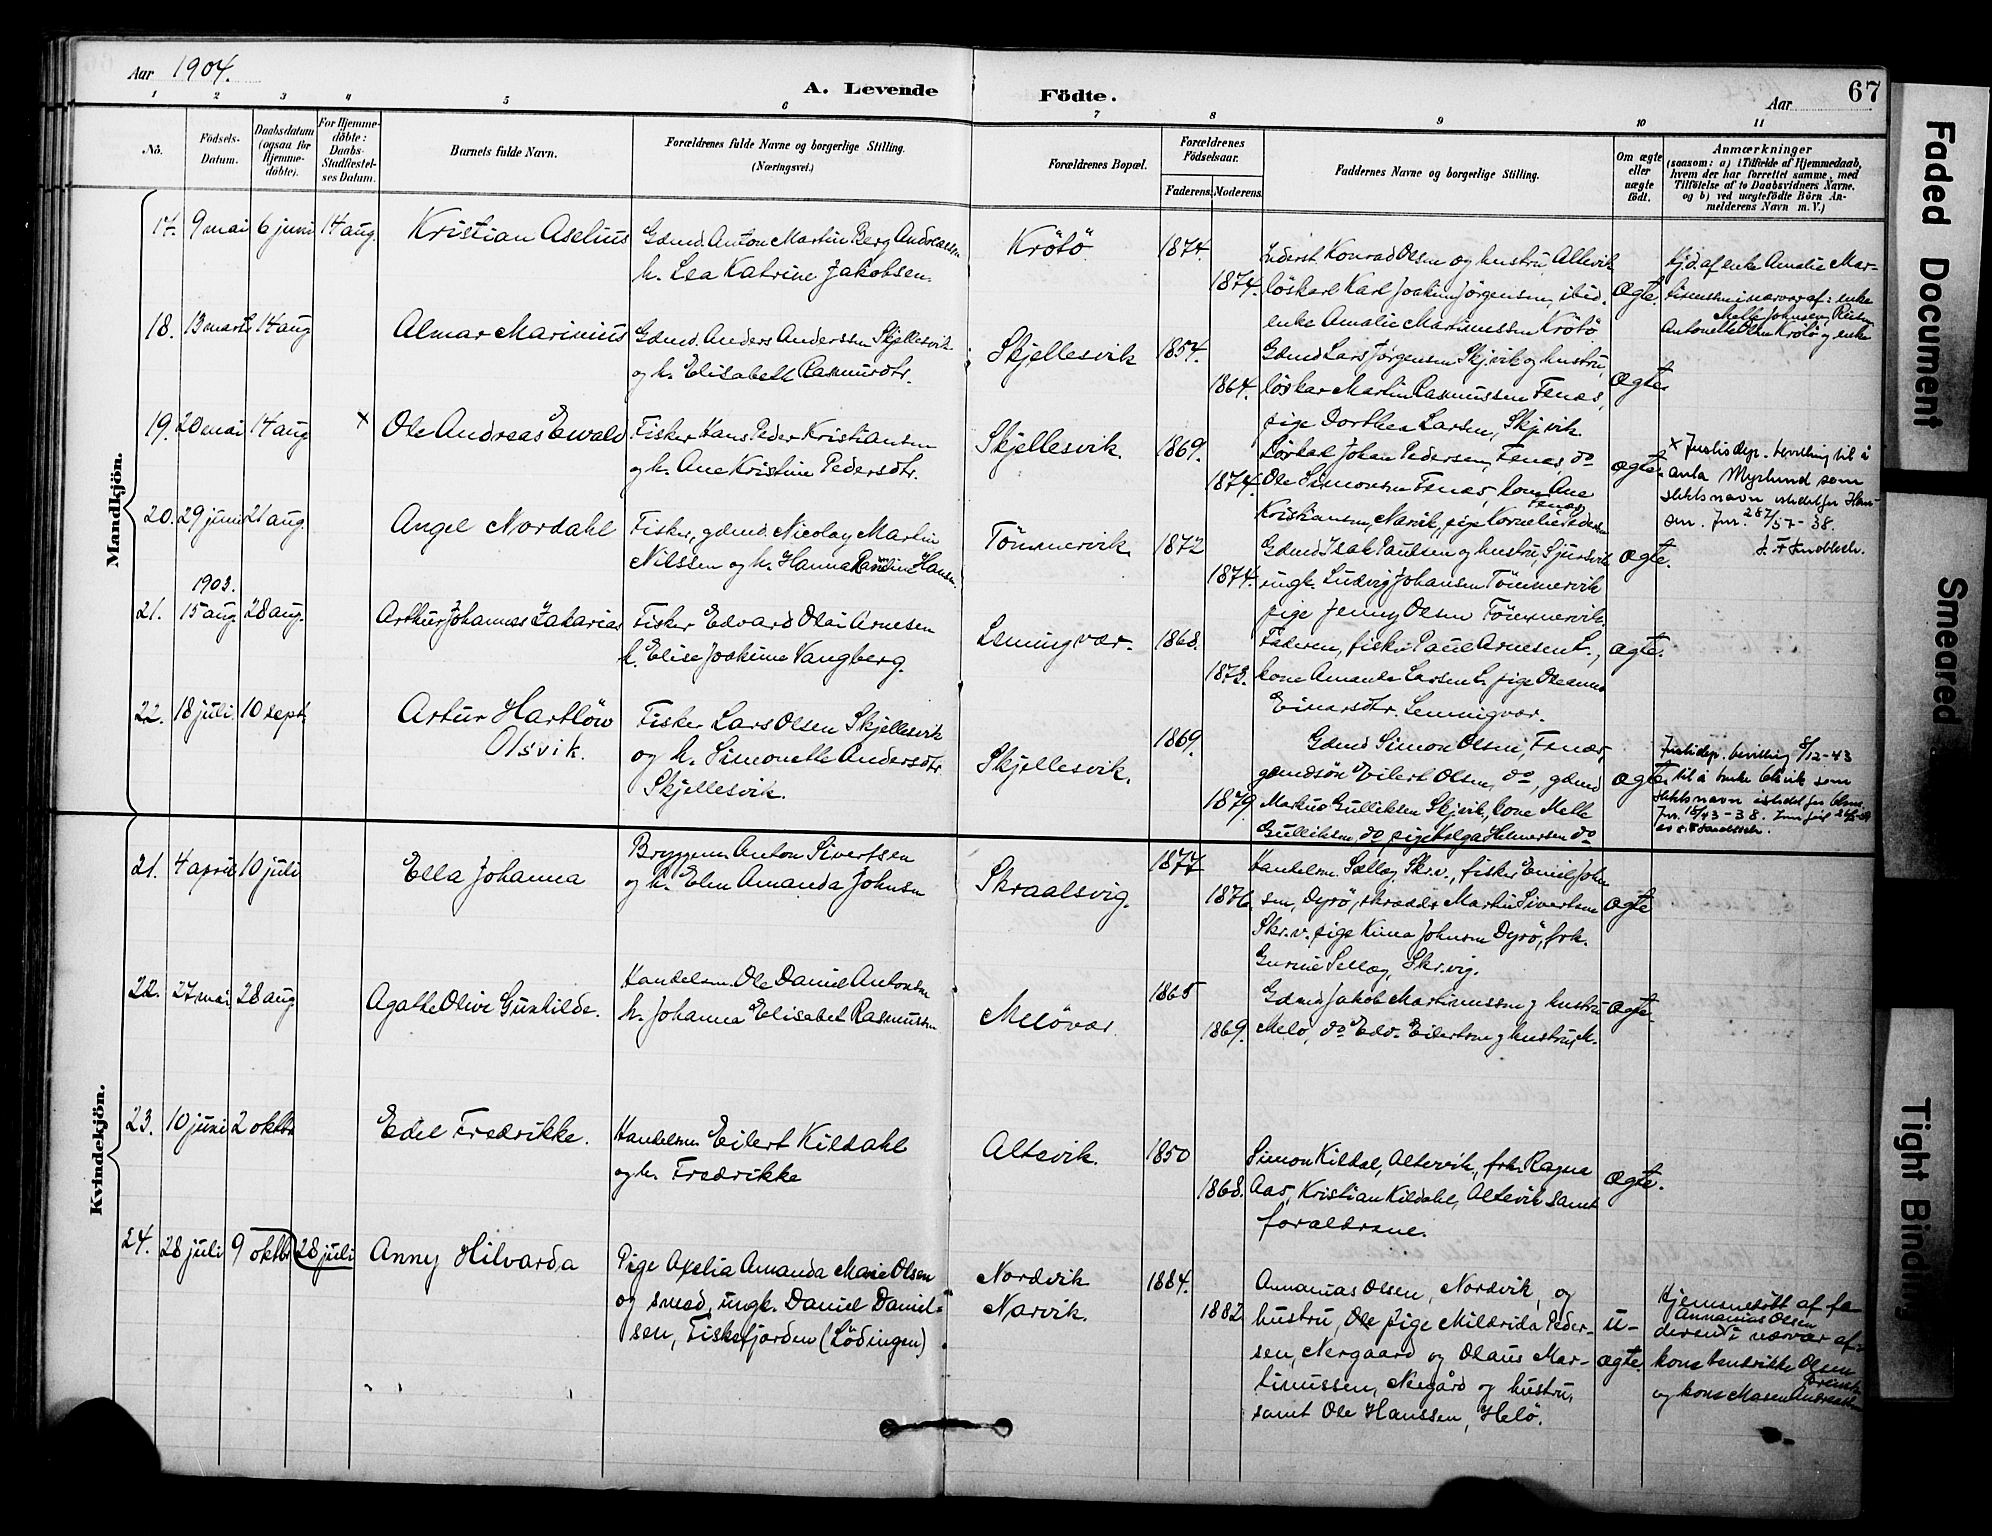 Aar 1904.
A. Levende Födte.
Aar 67
1 2 3 4 5 6 7 8 9 10 11
No.
Födsels-Datum.
Daabsdatum (ogsaa for Hjemme-döbte).
For Hjemme-döbte: Daabs-Stadfæstel-ses Datum.
Barnets fulde Navn.
Forældrenes fulde Navne og borgerlige Stilling. (Næringsvei.)
Forældrenes Bopæl.
Forældrenes Födselsaar.
Faderens. Moderens.
Faddernes Navne og borgerlige Stilling.
Om ægte eller uægte födt.
Anmærkninger
(saasom: a) i Tilfælde af Hjemmedaab,
hvem der har forrettet samme, med
Tilföielse af to Daabsvidners Navne.
og b) ved uægtefödte Börn An-
melderens Navn m. V.)
Mandkjön.
17. 9 mai 6 juni 14 aug. Kristian Aselius
Gdmd. Anton Martin Berg Andreassen
h. Lea Katrine Jakobsen.
Krötö 1874. 1874.
Konrad Olsen og hustru, Altevik
löskarl Karl Joakim Jörgensen, ibid.
enke Amalie Martinussen Krötö
ægte.
Hj.d. af enke Amalie Mar-
tinussen i nærvær af: enke
Antonette Olsen Krötö og enke
Mette Johnsen,
18. 13 marts 14 aug Almar Marinius
Gdmd. Anders Anderssen Skjellesvik
og h. Elisabeth Rasmusdtr.
Skjellesvik 1854. 1864.
Gdmd Lars Jörgensen Skj.vik og hustru,
löskar Martin Rasmussen Fenes,
pige Dorthea Larsen, Skj.vik
ægte
19. 20 mai 14 aug × Ole Andreas Ewald
Fisker Hans Peder Kristiansen
og h. Ane Kristine Pedersdtr.
Skjellesvik. 1869. 1874.
Johan Pedersen, Fenes, do
Ole Simonsen Fenes, kone Ane
Kristiansen, Narvik, pige Kornelie Pedersen
Fenes
ægte.
× Justisdep. bevilling til å
anta Myrlund som
slektsnavn istedetfor Han-
sen. Jnr. 287/57-38.
20. 29 juni 21 aug. Angel Nordahl
Fisker, gdmd. Nicolay Martin
Nilssen og h. Hanna Hansen
Tömmervik 1872 1874.
Gdmd Isak Paulsen og hustru,
ungk. Ludvig Johansen Tömmervik
pige Jenny Olsen Tömmervik.
ægte.
1903.
21. 15 aug. 28 aug. Arthur Johannes Zakarias
Fisker Edvard Olai Arnesen
h. Elise Joakime Vangberg.
Lemingvær. 1868. 1873.
Faderen, fisker Paul Arnesen L.,
kone Amanda Larsen L. pige Oleanna
Einarsdtr. Lemingvær.
ægte.
22. 18 juli. 10 sept. Artur Hartlöw
Olsvik.
Fisker Lars Olsen Skjellesvik
og h. Simonette Andersdtr.
Skjellesvik.
Skjellesvik. 1869. 1879.
Gdmd Simon Olsen, Fenes,
gdmdsön Eilert Olsen, do, gdmd
Markus Gulliksen Skjvik, kone Mette
Gulliksen do pige Helga Helmersen do
ægte
Justisdep. bevilling 8/12-43
til å bruke Olsvik som
slektsnavn istedet for Olsen.
Kvindekjön.
21. 4 april 10 juli Ella Johanna
Bryggem. Anton Sivertsen
og h. Elen Amanda Johnsen
Skraalsvig. 1877 1876.
Handelsm. Sellæg, Skr.v., fisker Emil John
sen, Dyrö, skrædd. Martin Sivertsen
Skr.v. pige Kima Johnsen Dyrö, frk.
Gurine Sellæg, Skr.vig.
ægte
22. 27 mai. 28 aug Agathe Olive Gunhilde.
Handelsm. Ole Daniel Antonsen
h. Johanna Elisabet Rasmussen
Melövær. 1865 1869.
Gdmd Jakob Martinussen og hustru
Melö, do Edv. Eilertsen og hustru, M.
ægte.
23. 10 juni 2 oktbr Edel Fredrikke.
Handelsm Eilert Kildahl
og h. Fredrikke
Altevik. 1850 1868.
Simon Kildal, Altevik, frk. Ragna
Aas, Kristian Kildahl, Altevik samt
forældrene.
ægte.
24. 28 juli 9 oktbr 28 juli Anny Hilvarda
Pige Axelia Amanda Marie Olsen
og smed, ungk. Daniel Daniel-
sen, Fiskefjorden (Lödingen).
Nordvik
Narvik. 1884. 1882
Annanias Olsen, Nordvik, og
hustru, Ole pige Mildrida Peder-
sen, Nergaard og Olaus Mar-
tinussen, Negård og hustru,
samt Ole Hanssen, Helö.
u-
ægte.
Hjemmedöbt af fa-
deren i nærvær af
Annanias Olsen
kone Hendrikke Olsen
og kone Maren Andreassen
Faded Document
Smeared
Tight Binding